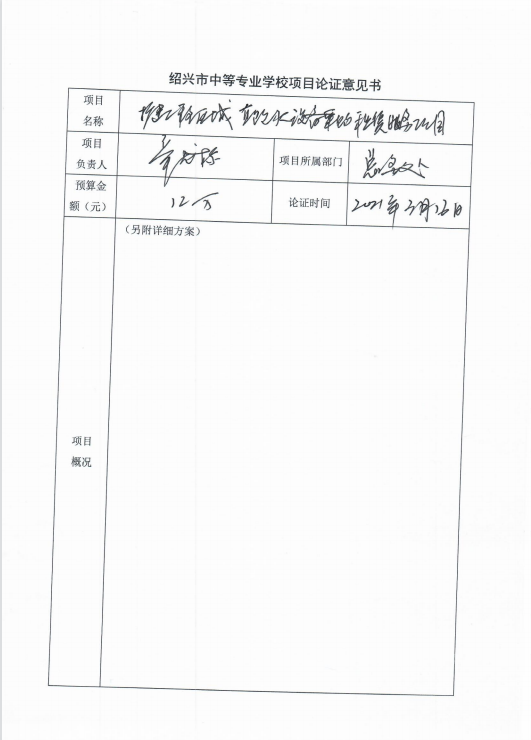 绍兴市中等专业学校项目论证意见书
项目名称
直饮水设备采购租赁服务项目
项目负责人
项目所属部门
总务处
预算金额（元）
12万
论证时间
2021年3月26日
项目概况
（另附详细方案）